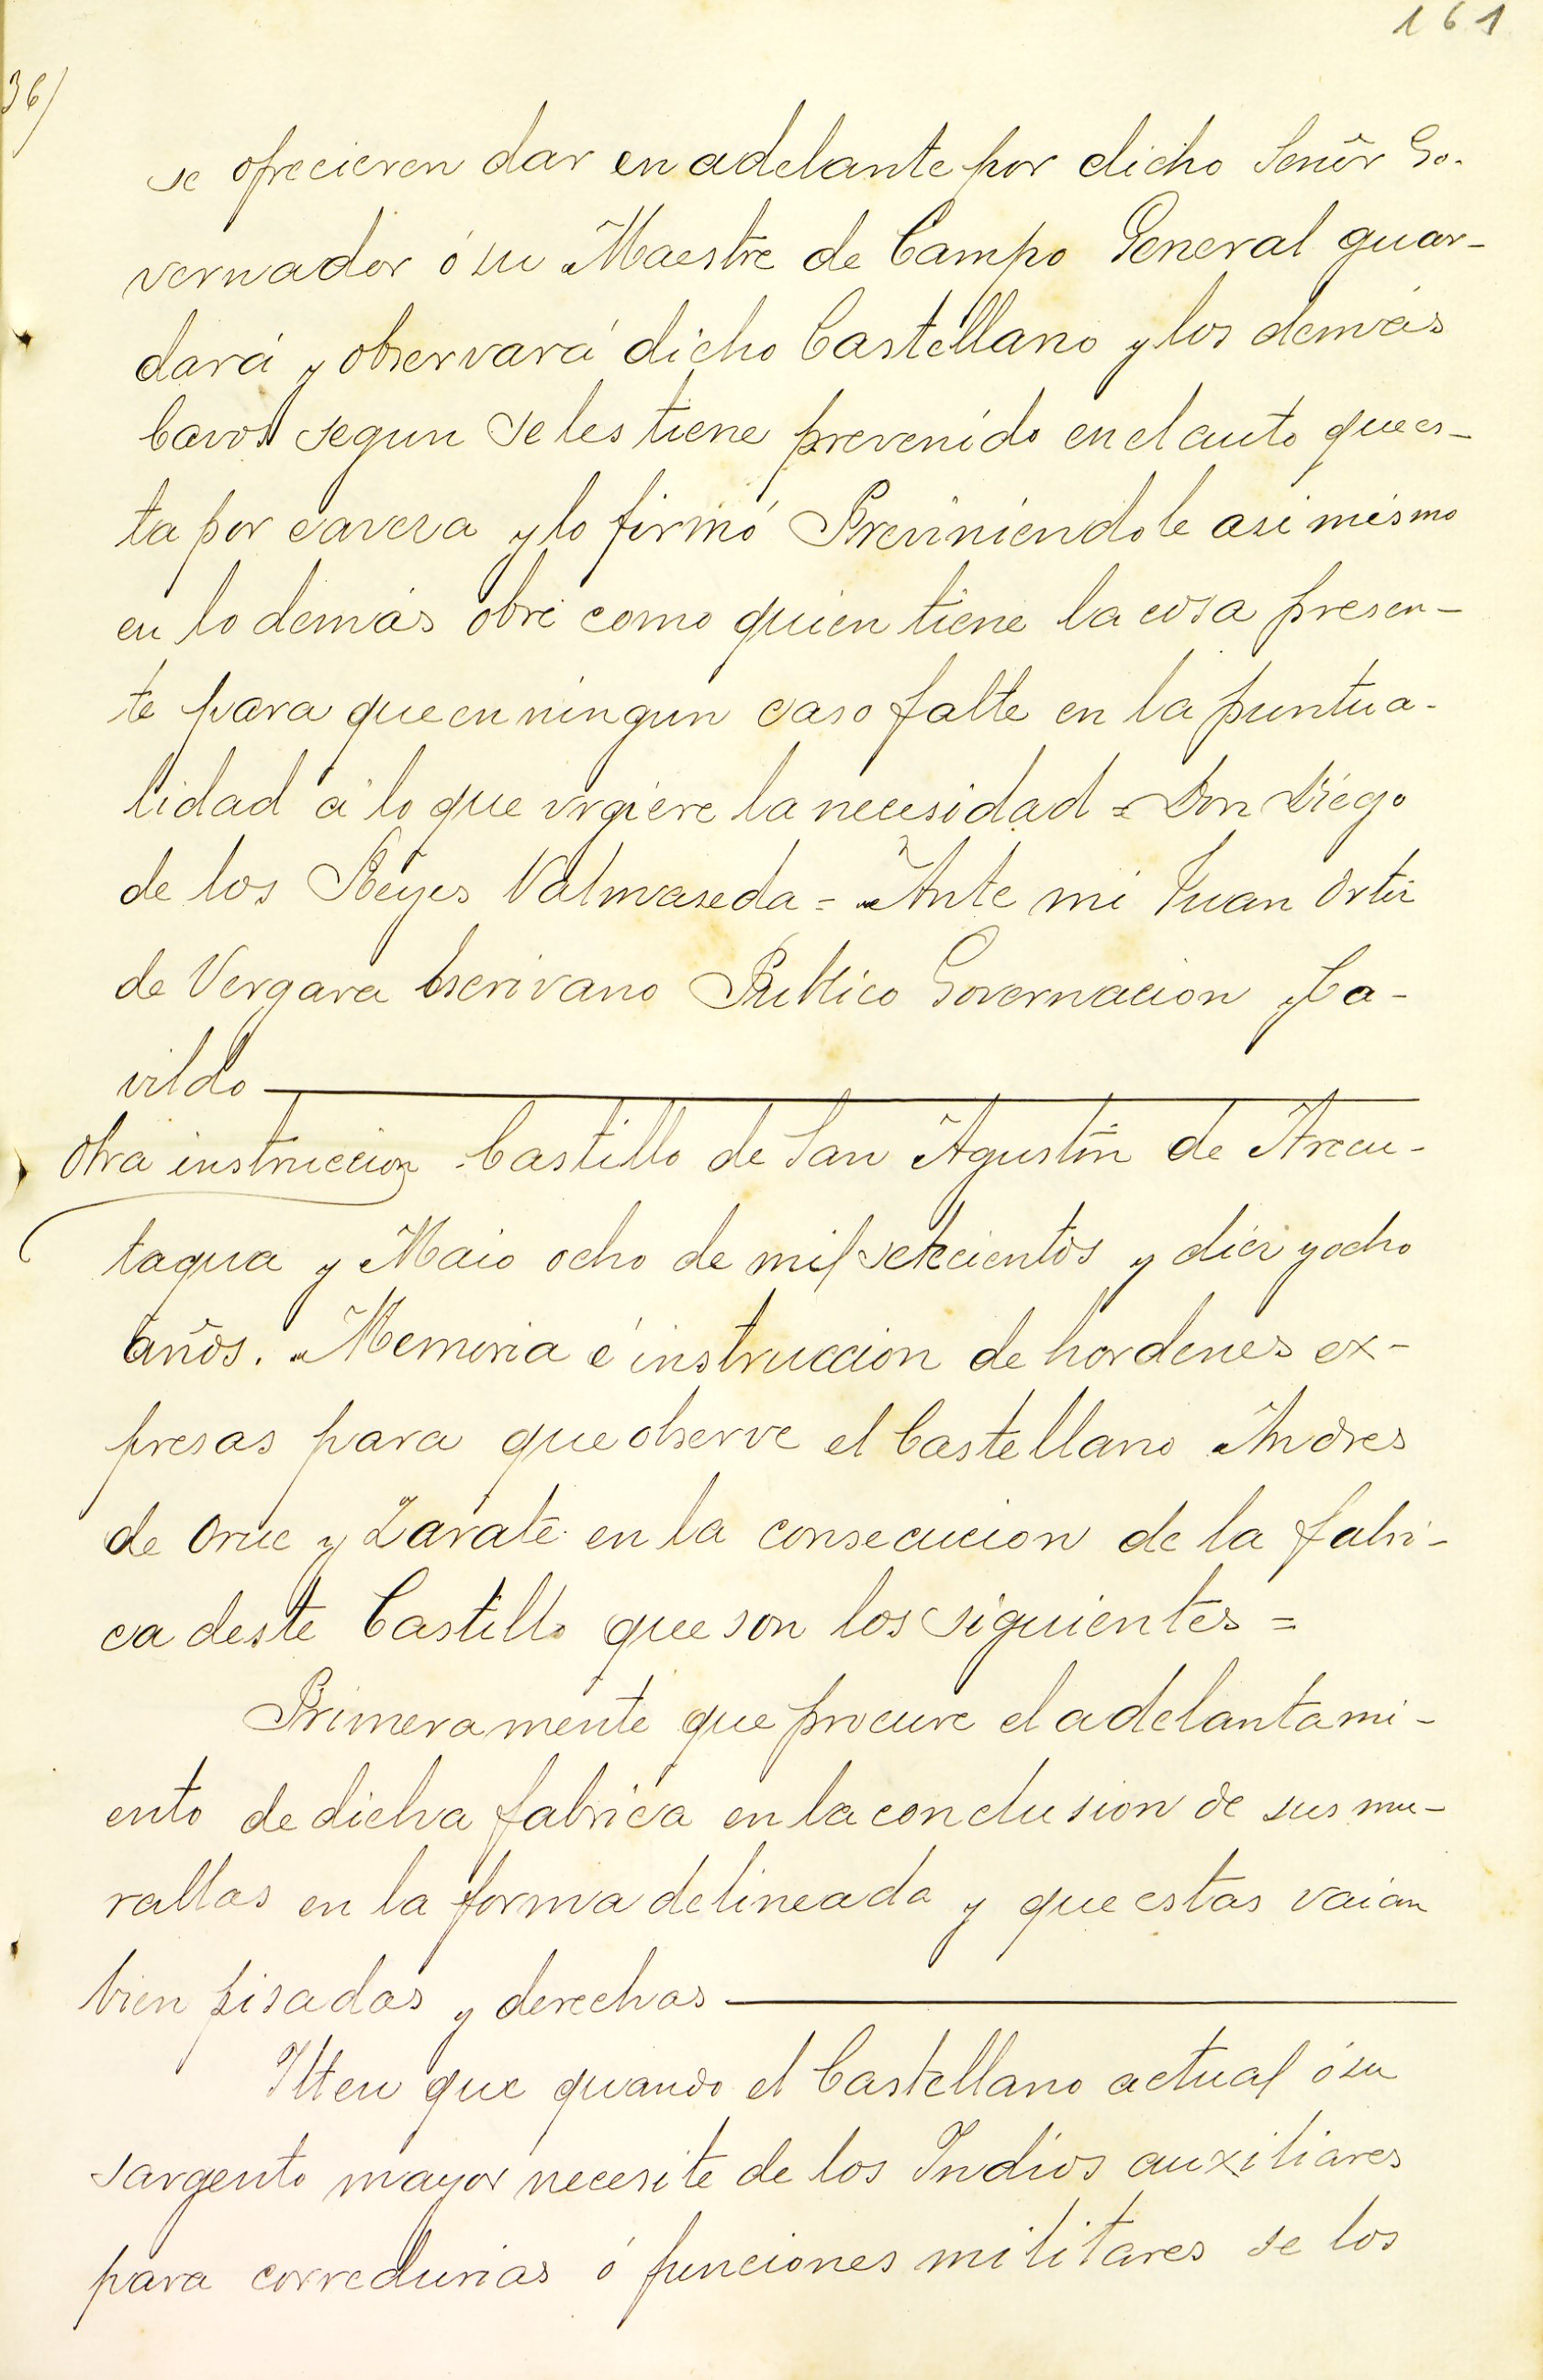 161
36/
se ofrecieren dar en adelante por dicho Señor Go-
vernador ó su Maestre de Campo General guar-
dará y observará dicho Castellano y los demás
Cavos segun se les tiene prevenido en el auto que es-
ta por caveza y lo firmó Previniendole asi mismo
en lo demás obre como quien tiene la cosa presen-
te para que en ningun caso falte en la puntua-
lidad á lo que urgiere la necesidad = Don Diego
de los Reyes Valmaseda = Ante mi Juan Ortiz
de Vergara Escrivano Publico Governacion y Ca-
vildo
Otra instruccion Castillo de San Agustin de Arecu-
tagua y Maio ocho de mil setecientos y diez y ocho
años. Memoria é instruccion de hordenes ex-
presas para que observe el Castellano Andres
de Orue y Zarate en la consecucion de la fabri-
ca deste Castillo que son los siguientes =
Primeramente que procure el adelantami-
ento de dicha fabrica en la conclusion de sus mu-
rallas en la forma delineada y que estas vaian
bien pisadas y derechas
Itten que quando el Castellano actual ó su
sargento mayor necesite de los Indios auxiliares
para corredurias ó funciones militares se los